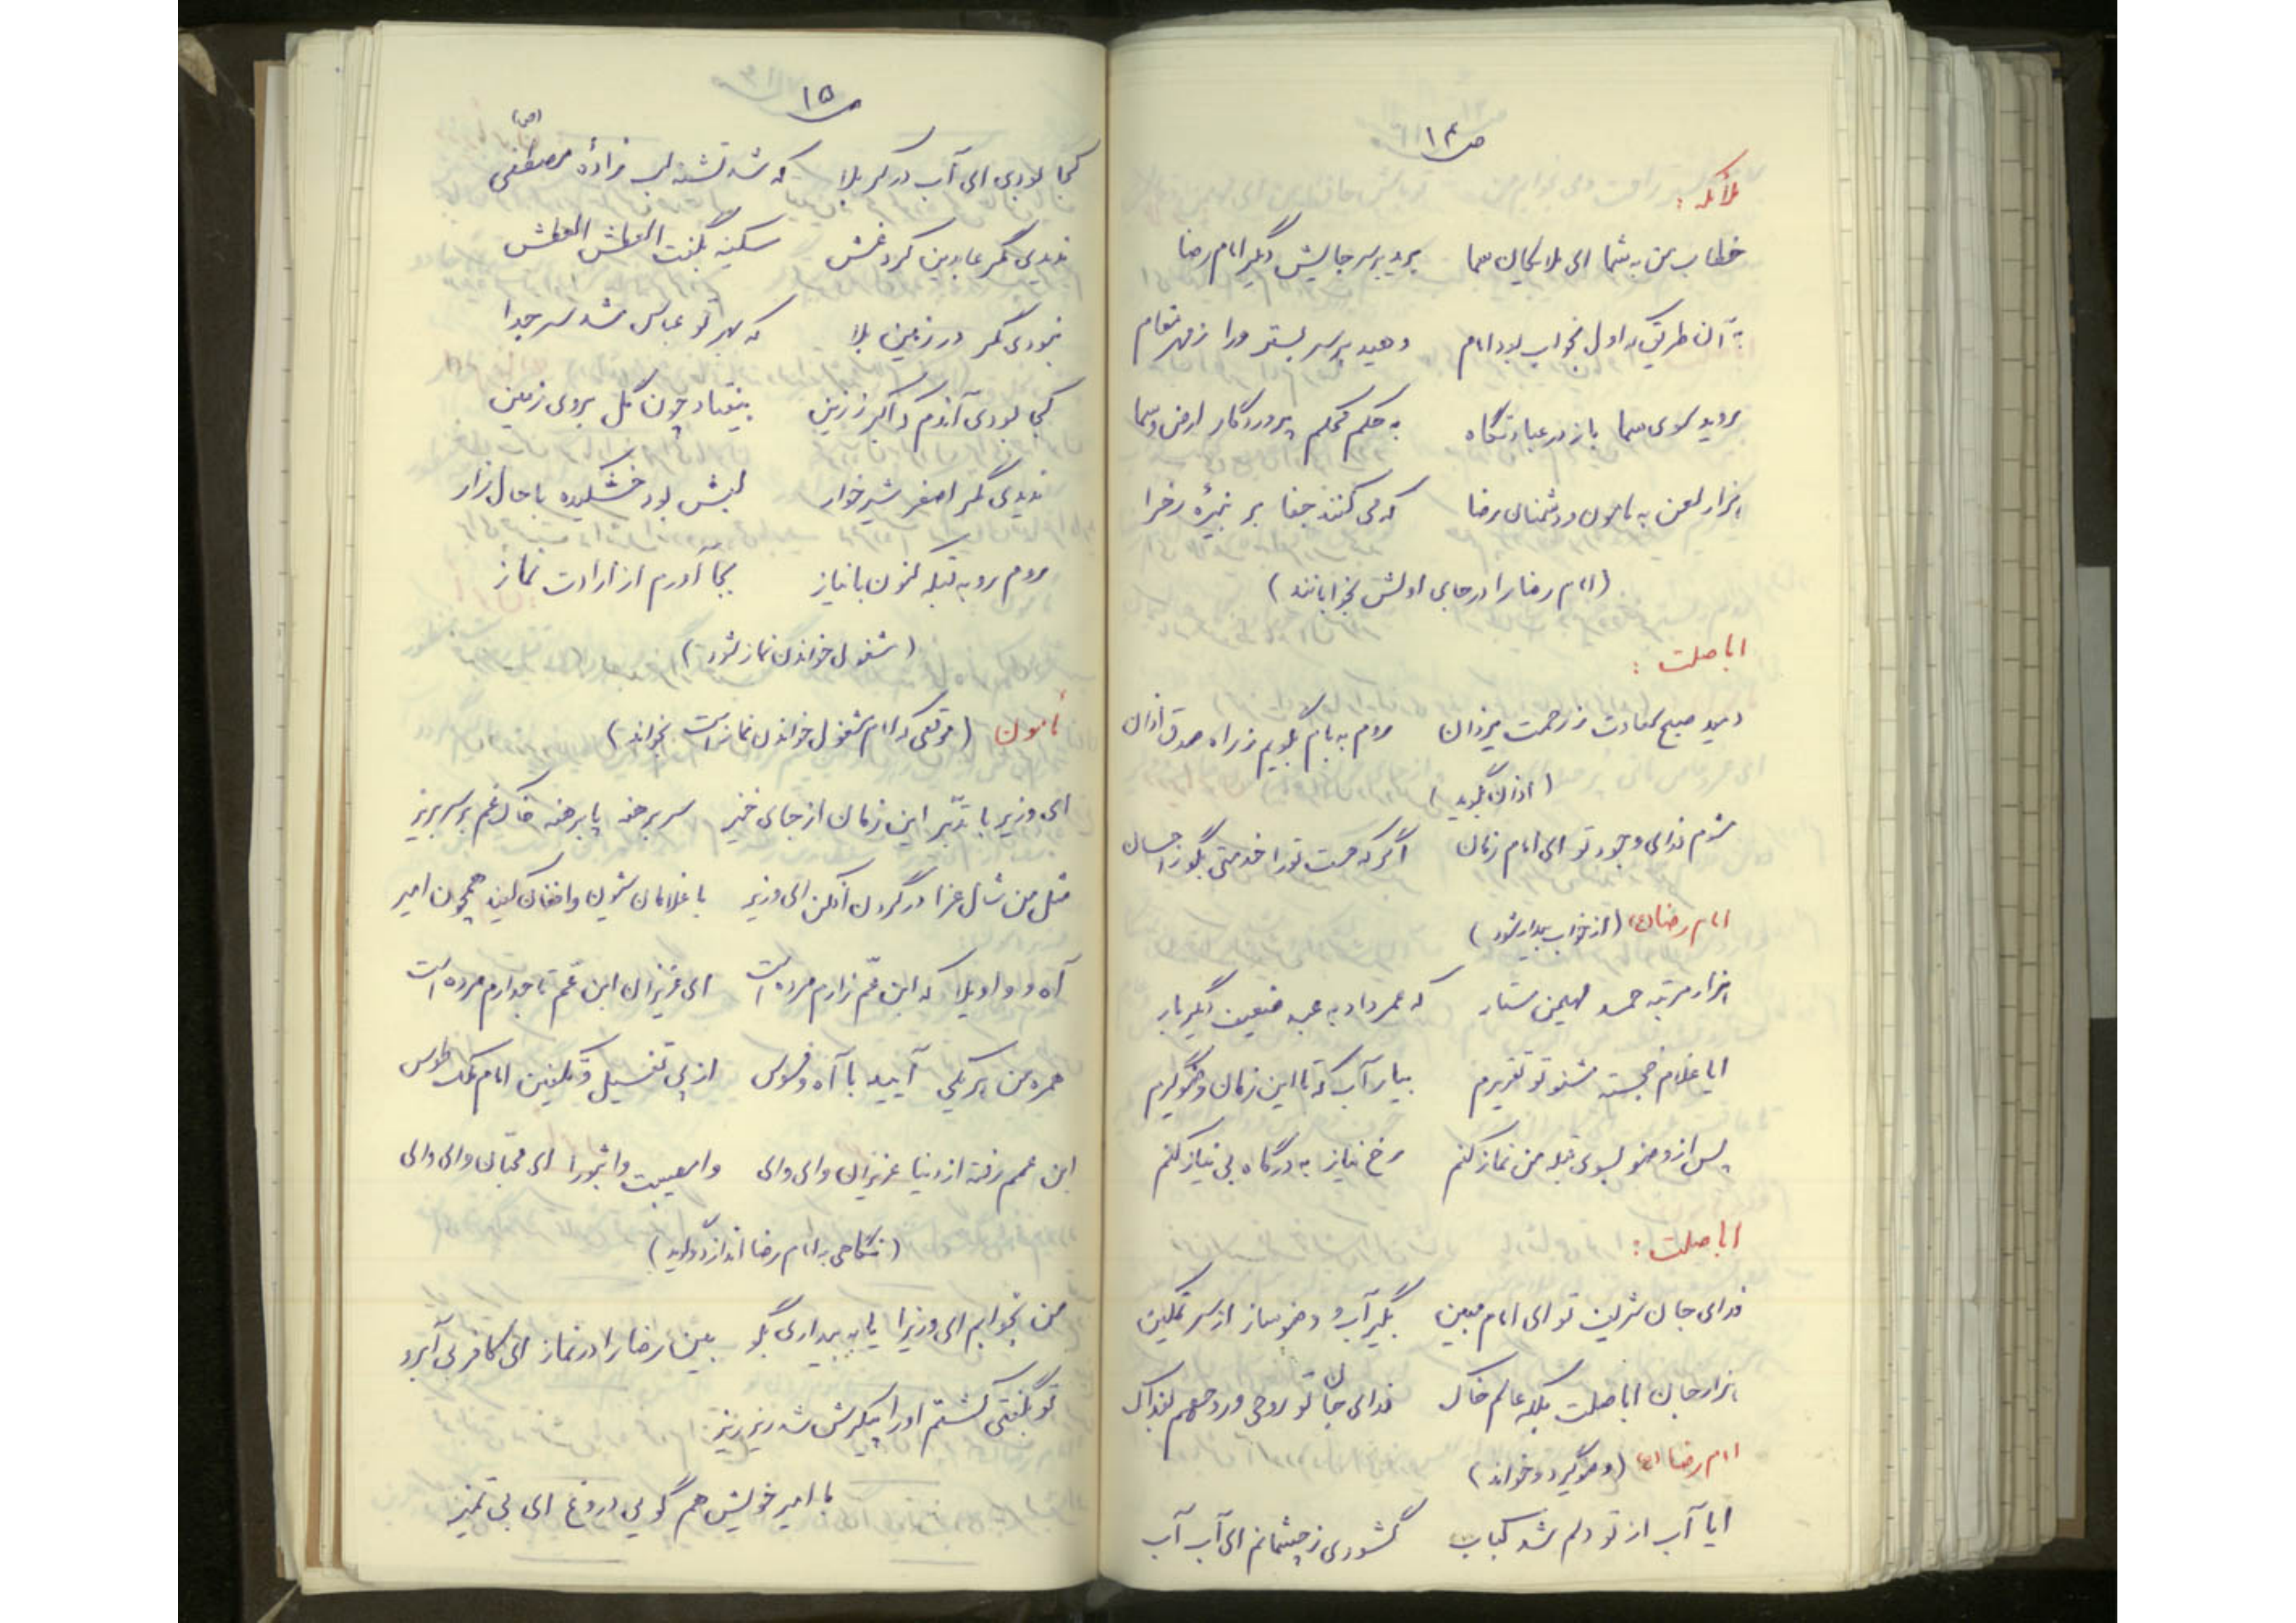 ص۱۴
ملائکه :
خطاب من به شما ای ملایکان سما برید بر سر جایش دگر امام رضا
به آن طریق که اول بخواب بود امام دهید بر سر بستر ورا ز مهر مقام
بروید سوی سما باز در عبادتگاه به حکم محکم پروردگار ارض و سما
هزار لعن به مامون و دشمنان رضا که می کنند جفا بر نبیرهٔ زهرا
(امام رضا را در جای اولش بخوابانند)
اباصلت :
دمید صبح سعادت ز رحمت یزدان روم به بام بگویم ز راه صدق اذان
(اذان بگوید)
شوم فدای وجود تو ای امام زمان اگر که هست تو را خدمتی بگو ز احسان
امام رضا (ع) (از خواب بیدار شود)
هزار مرتبه حمد مهیمن ستار که عمر داد به عبد ضعیف دگر بار
ایا غلام خجسته شنو تو تقریرم بیار آب که تا این زمان وضو گیرم
پس از وضو بسوی قبله من نماز کنم رخ نیاز به درگاه بی نیاز کنم
اباصلت :
فدای جان شریف تو ای امام مبین بگیر آب و وضو ساز از سر تمکین
هزار جان اباصلت بلکه عالم خاک فدای جان تو روحی و روحهم بفداک
امام رضا (ع) (وضو گیرد و خواند)
ایا آب از تو دلم شد کباب گشودی ز چشمانم ای آب آب
ص۱۵
کجا بودی ای آب در کربلا که شد تشنه لب زادهٔ مصطفی (ص)
ندیدی مگر عابدین کرد غش سکینه بگفت العطش العطش
نبودی مگر در زمین بلا که بهر تو عباس شد سر جدا
کجا بودی آندم که اکبر ز زین بیفتاد چون گل بروی زمین
ندیدی مگر اصغر شیرخوار لبش بود خشکیده با حال زار
روم رو به قبله کنون با نیاز بجا آورم از ارادت نماز
(مشغول خواندن نماز شود)
مأمون (موقعی که امام مشغول خواندن نماز است بخواند)
ای وزیر با تدبّر این زمان از جای خیز سر برهنه پا برهنه خاک غم بر سر بریز
مثل من شال عزا در گردن افکن ای وزیر با غلامان شیون و افغان کنید همچون امیر
آه و واویلا که ابن عمّ زارم مرده است ای عزیزان ابن عمّ تاجدارم مرده است
همره من هر یکی آیید با آه و فسوس از پی تغسیل و تکفین امام ملک طوس
ابن عمم رفته از دنیا عزیزان وای وای وامصیبت واثبورا ای محبّان وای وای
(نگاهی به امام رضا اندازد گوید)
من بخوابم ای وزیرا یا به بیداری بگو بین رضا را در نماز ای کافر بی آبرو
تو بگفتی کشتم او را پیکرش شد ریز ریز
با امیر خویش هم گویی دروغ ای بی تمیز